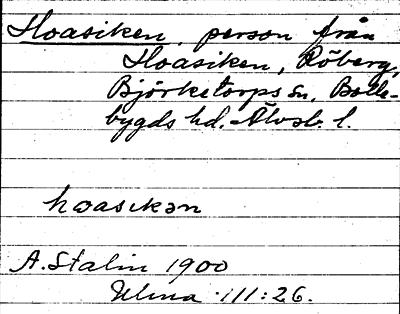 Hoasiken, person från
Hoasiken, Röberg,
Björketorps sn, Bolle-
bygds hd. Älvsb. l.
hωasikən
A. Stalin 1900
Ulma 111:26.